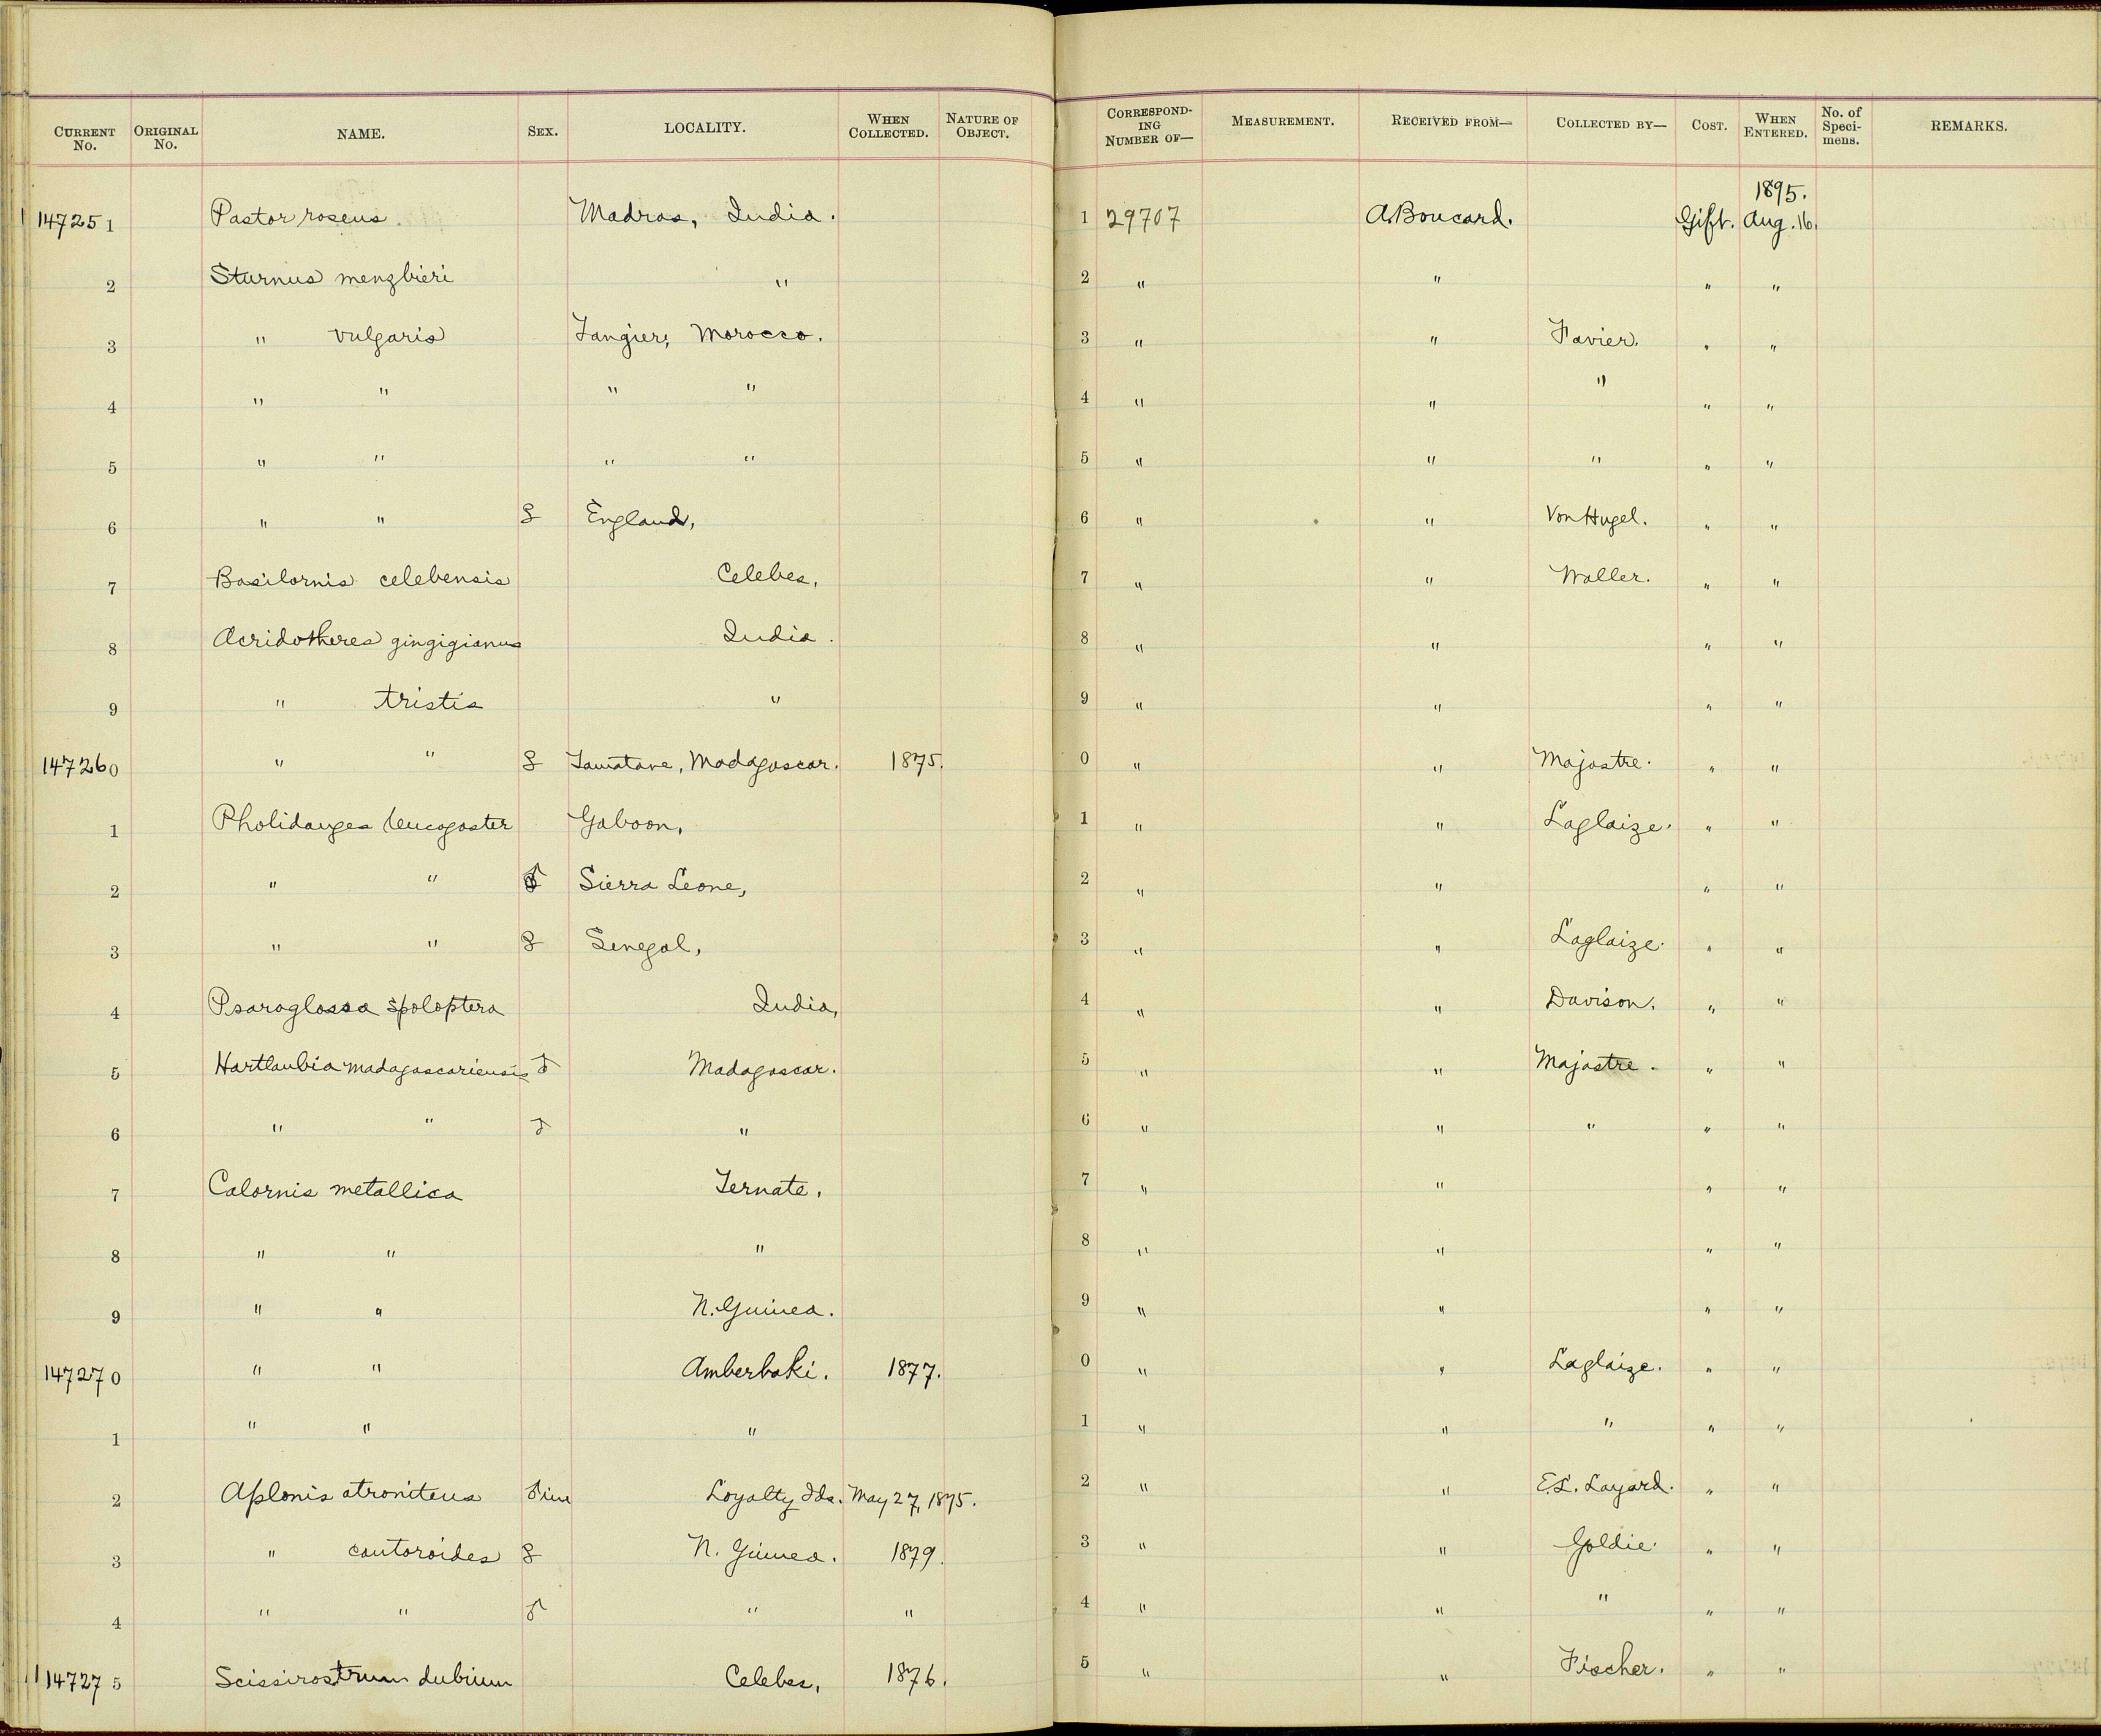 CURRENT No. ORIGINAL No. NAME. SEX. LOCALITY. WHEN COLLECTED. NATURE OF OBJECT. CORRESPONDING NUMBER OF— MEASUREMENT. RECEIVED FROM— COLLECTED BY— COST. WHEN ENTERED. No. of Specimens. REMARKS.
1895.
147251 Pastor roseus. Madras, India. 1 29707 A. Boucard. Gift. Aug. 16.
2 Sturnus menzbieri " 2 " " " "
3 " vulgaris Tangier, Morocco. 3 " " Favier. " "
4 " " " " 4 " " " " "
5 " " " " 5 " " " " "
6 " " ♀ England, 6 " " Von Hugel. " "
7 Basilornis celebensis Celebes, 7 " " Waller. " "
8 Acridotheres gingigianus India. 8 " " " "
9 " tristis " 9 " " " "
147260 " " ♀ Tamatave, Madagascar. 1875. 0 " " Majastre. " "
1 Pholidauges leucogaster Gaboon, 1 " " Laglaize. " "
2 " " ♂ Sierra Leone, 2 " " " "
3 " " ♀ Senegal, 3 " " Laglaize. " "
4 Psaroglossa spoloptera India, 4 " " Davison. " "
5 Hartlaubia madagascariensis ♂ Madagascar. 5 " " Majastre. " "
6 " " ♂ " 6 " " " " "
7 Calornis metallica Ternate, 7 " " " "
8 " " " 8 " " " "
9 " " N. Guinea. 9 " " " "
147270 " " Amberbaki. 1877. 0 " " Laglaize. " "
1 " " " 1 " " " " "
2 Aplonis atronitens ♂ im Loyalty Ids. May 27, 1875. 2 " " E.L. Layard. " "
3 " cantoroides ♀ N. Guinea. 1879. 3 " " Goldie. " "
4 " " ♂ " " 4 " " " " "
147275 Scissirostrum dubium Celebes, 1876. 5 " " Fischer. " "